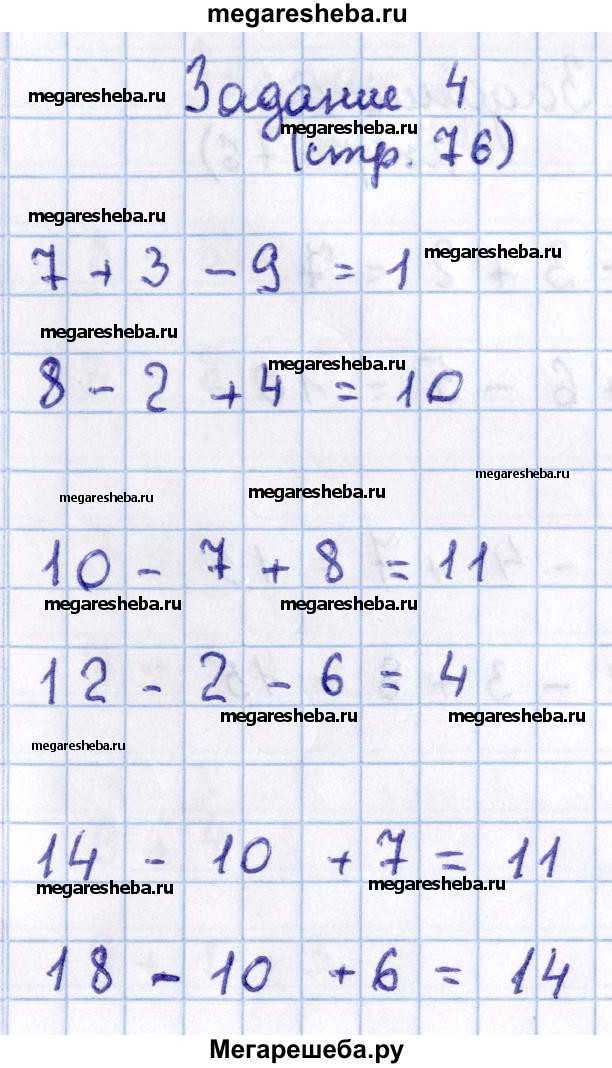 megaresheba.ru
Задание 4
megaresheba.ru
megaresheba.ru
(стр. 76)
megaresheba.ru
7 + 3 - 9 = 1
megaresheba.ru
megaresheba.ru
8 - 2 + 4 = 10
megaresheba.ru
megaresheba.ru
megaresheba.ru
megaresheba.ru
10 - 7 + 8 = 11
megaresheba.ru
megaresheba.ru
12 - 2 - 6 = 4
megaresheba.ru
megaresheba.ru
megaresheba.ru
14 - 10 + 7 = 11
megaresheba.ru
megaresheba.ru
18 - 10 + 6 = 14
Мегарешеба.ру